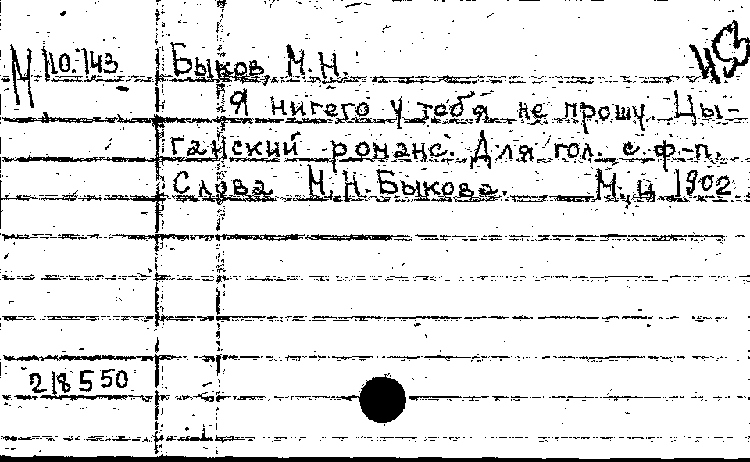 М 110.143 Быков, М.Н.
Я ничего у тебя не прошу. Цы-
ганский романс. Для гол. с ф-п.
Слова М.Н. Быкова. М., ц. 1902
218550